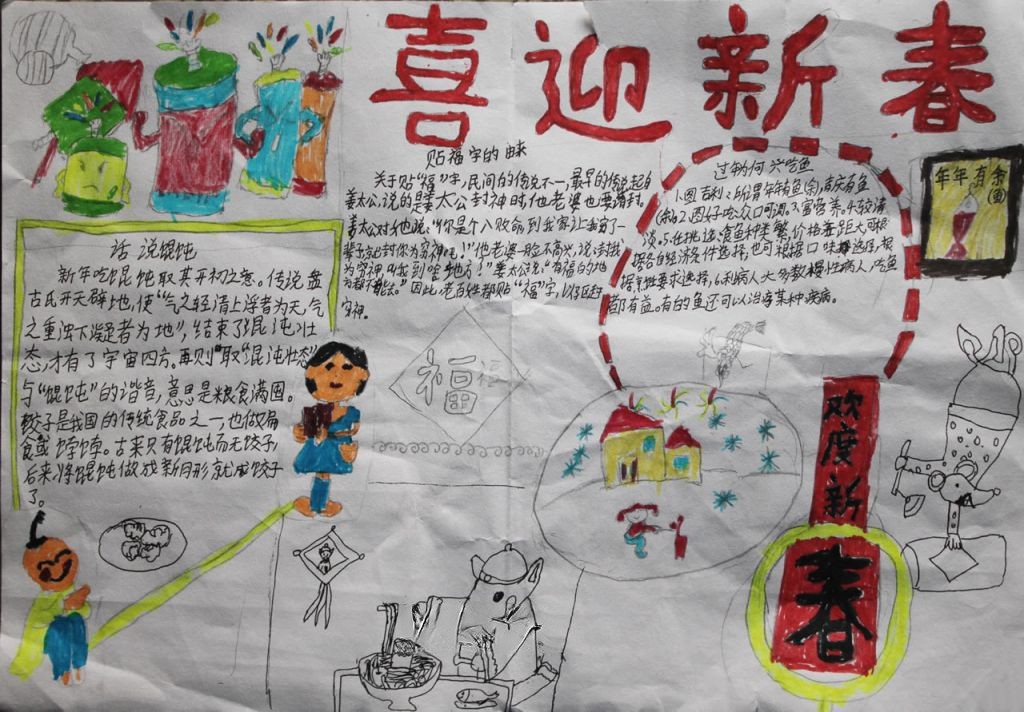 喜迎新春
贴福字的由来
关于贴“福”字，民间的传说不一，最早的传说起自
姜太公，说的是姜太公封神时他老婆也要讨封。
姜太公对他说：“你是个八败命，到我家让我穷了一
辈子就封你为穷神吧！”他老婆一脸不高兴，说：“封我
为穷神叫我到啥地方！”姜太公说：“有福的地
方都不能去。”因此，老百姓都贴“福”字，以区赶
穷神。
过年为何兴吃鱼
1.图吉利：所谓年年有鱼(余)，喜庆有鱼
(余)2.图好吃众口可调。3.富营养。4.较清
淡。5.任挑选：食鱼种类繁，价格差距大，可根
据各自经济条件选择，也可根据口味
要求选择，6.利病人：大多数慢性病人，吃鱼
都有益。有的鱼还可以治疗某种疾病。
年年有余
(鱼)
话说馄饨
新年吃馄饨取其开初之意。传说盘
古氏开天辟地，使“气之轻清上浮者为天，气
之重浊下凝者为地”，结束了混沌状
态，才有了宇宙四方。再则取“混沌状态”
与“馄饨”的谐音，意思是粮食满囤。
饺子是我国的传统食品之一，也做扁
食或饽饽。古来只有馄饨而无饺子
后来，将馄饨做成新月形就成饺子
了。
福
福
欢度新
春